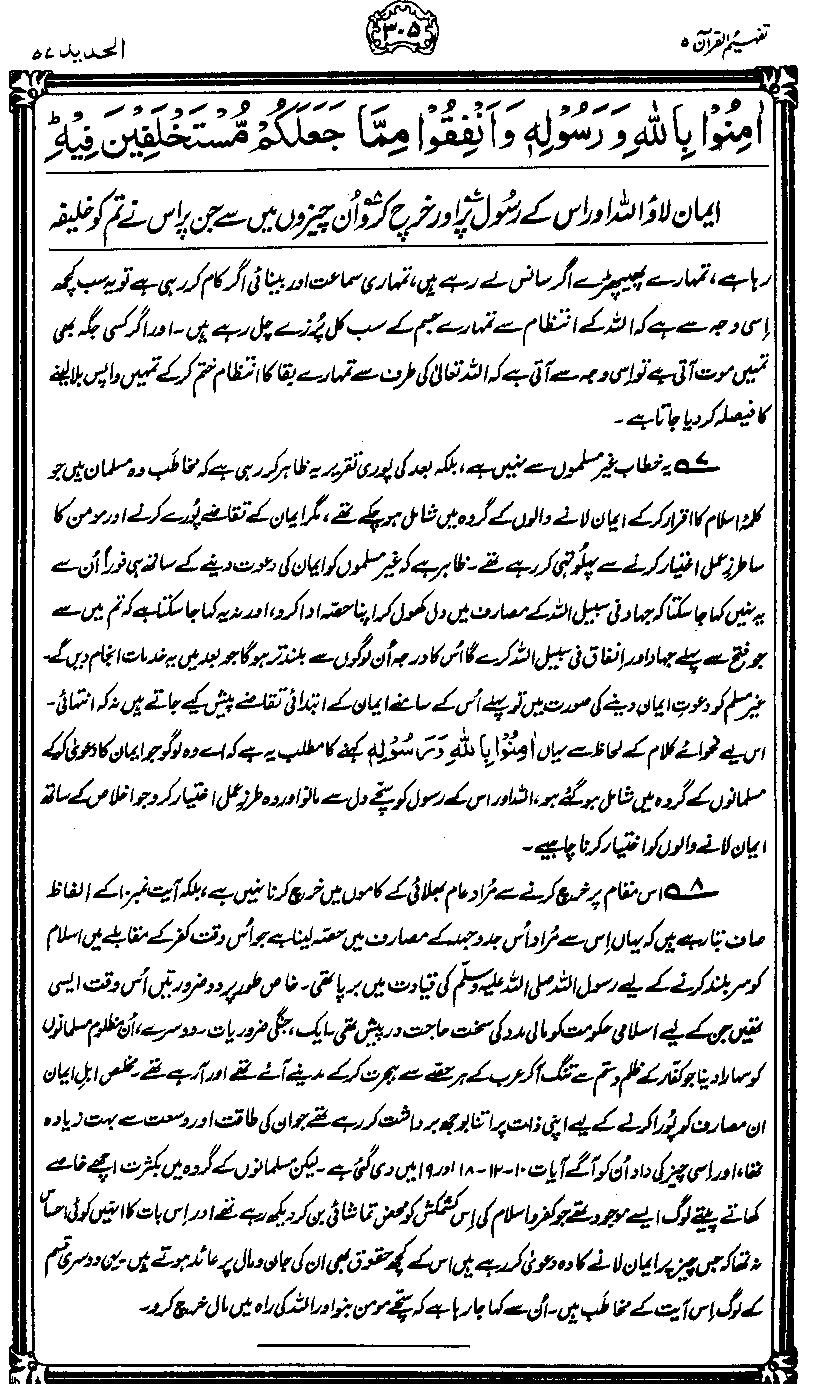 تفہیم القرآن ۵
۳۰۵
الحدید ۵۷
اٰمِنُوۡا بِاللّٰہِ وَ رَسُوۡلِہٖ وَ اَنۡفِقُوۡا مِمَّا جَعَلَکُمۡ مُّسۡتَخۡلَفِیۡنَ فِیۡہِ ؕ
ایمان لاؤ اللہ اور اس کے رسُول پر اور خرچ کرو اُن چیزوں میں سے جن پر اس نے تم کو خلیفہ
رہا ہے، تمہارے پھیپھڑے اگر سانس لے رہے ہیں، تمہاری سماعت اور بینائی اگر کام کر رہی ہے تو یہ سب کچھ
اِسی وجہ سے ہے کہ اللہ کے انتظام سے تمہارے جسم کے سب کل پُرزے چل رہے ہیں۔ اور اگر کسی جگہ بھی
تمہیں موت آتی ہے تو اسی وجہ سے آتی ہے کہ اللہ تعالیٰ کی طرف سے تمہارے بقا کا انتظام ختم کر کے تمہیں واپس بلا لینے
کا فیصلہ کر دیا جاتا ہے۔
۷؎ یہ خطاب غیر مسلموں سے نہیں ہے، بلکہ بعد کی پوری تقریر یہ ظاہر کر رہی ہے کہ مخاطَب وہ مسلمان ہیں جو
کلمۂ اسلام کا اقرار کر کے ایمان لانے والوں کے گروہ میں شامل ہو چکے تھے، مگر ایمان کے تقاضے پُورے کرنے اور مومن کا
سا طرزِ عمل اختیار کرنے سے پہلو تہی کر رہے تھے۔ ظاہر ہے کہ غیر مسلموں کو ایمان کی دعوت دینے کے ساتھ ہی فوراً اُن سے
یہ نہیں کہا جا سکتا کہ جہاد فی سبیل اللہ کے مصارف میں دل کھول کر اپنا حصّہ ادا کرو، اور نہ یہ کہا جا سکتا ہے کہ تم میں سے
جو فتح سے پہلے جہاد اور اِنفاق فی سبیل اللہ کرے گا اُس کا درجہ اُن لوگوں سے بلند تر ہوگا جو بعد میں یہ خدمات انجام دیں گے۔
غیر مسلم کو دعوتِ ایمان دینے کی صورت میں تو پہلے اُس کے سامنے ایمان کے ابتدائی تقاضے پیش کیے جاتے ہیں نہ کہ انتہائی۔
اس لیے فحوائے کلام کے لحاظ سے یہاں اٰمِنُوۡا بِاللّٰہِ وَرَسُوۡلِہٖ کہنے کا مطلب یہ ہے کہ اے وہ لوگو جو ایمان کا دعویٰ کر کے
مسلمانوں کے گروہ میں شامل ہو گئے ہو، اللہ اور اس کے رسول کو سچّے دل سے مانو اور وہ طرزِ عمل اختیار کرو جو اخلاص کے ساتھ
ایمان لانے والوں کو اختیار کرنا چاہیے۔
۸؎ اس مقام پر خرچ کرنے سے مُراد عام بھلائی کے کاموں میں خرچ کرنا نہیں ہے، بلکہ آیت نمبر ۱۰ کے الفاظ
صاف بتا رہے ہیں کہ یہاں اِس سے مُراد اُس جدوجہد کے مصارف میں حصّہ لینا ہے جو اُس وقت کفر کے مقابلے میں اسلام
کو سربلند کرنے کے لیے رسول اللہ صلی اللہ علیہ وسلّم کی قیادت میں برپا تھی۔ خاص طور پر دو ضرورتیں اُس وقت ایسی
تھیں جن کے لیے اسلامی حکومت کو مالی مدد کی سخت حاجت درپیش تھی۔ ایک، جنگی ضروریات۔ دوسرے، اُن مظلوم مسلمانوں
کو سہارا دینا جو کفار کے ظلم و ستم سے تنگ آ کر عرب کے ہر حصّے سے ہجرت کر کے مدینے آئے تھے اور آ رہے تھے۔ مخلص اہلِ ایمان
ان مصارف کو پُورا کرنے کے لیے اپنی ذات پر اتنا بوجھ برداشت کر رہے تھے جو ان کی طاقت اور وسعت سے بہت زیادہ
تھا، اور اِسی چیز کی داد اُن کو آگے آیات ۱۰-۱۲-۱۸ اور ۱۹ میں دی گئی ہے۔ لیکن مسلمانوں کے گروہ میں بکثرت اچھے خاصے
کھاتے پیتے لوگ ایسے موجود تھے جو کفر و اسلام کی اِس کشمکش کو محض تماشائی بن کر دیکھ رہے تھے اور اِس بات کا انہیں کوئی احساس
نہ تھا کہ جس چیز پر ایمان لانے کا وہ دعویٰ کر رہے ہیں اس کے کچھ حقوق بھی ان کی جان و مال پر عائد ہوتے ہیں۔ یہی دوسری قسم
کے لوگ اِس آیت کے مخاطَب ہیں۔ اُن سے کہا جا رہا ہے کہ سچّے مومن بنو اور اللہ کی راہ میں مال خرچ کرو۔